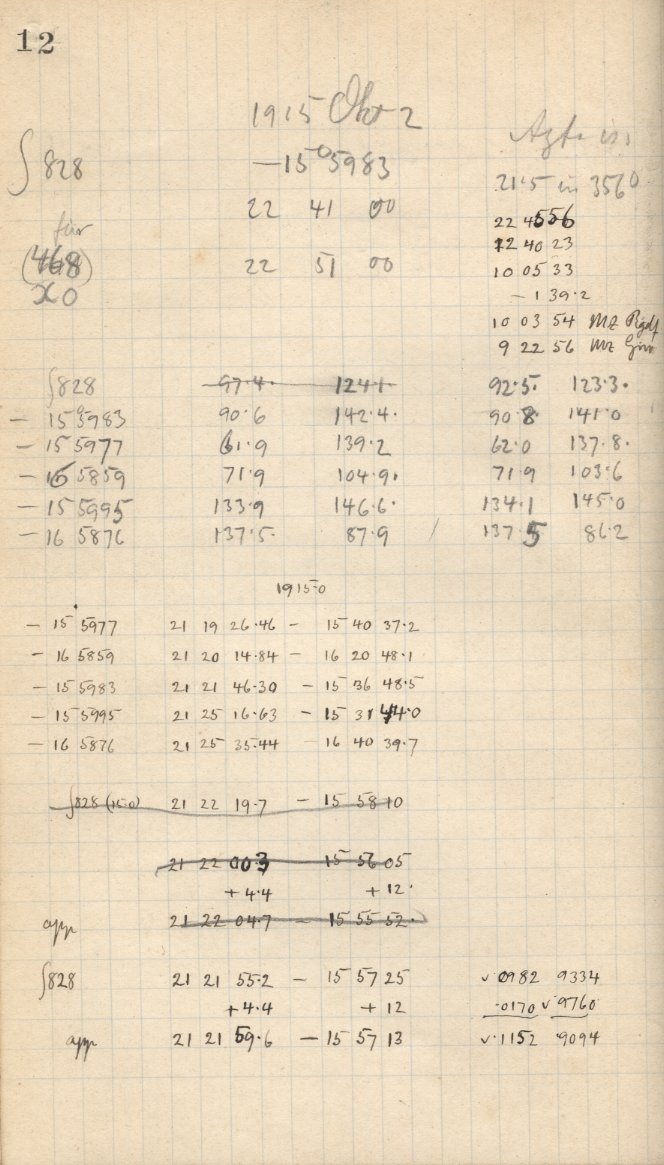 12
1915 Okt 2
∫828 −15° 5983
21·5 in 3560
22 41 00
für
22 4556
(468) 22 51 00
12 40 23
x0
10 05 33
− 1 39·2
10 03 54 MZ Bgdf
9 22 56 MZ Grw
∫828 97·4· 124·1 92·5· 123·3·
− 15° 5983 90·6 142·4· 90·8 141·0
− 15 5977 61·9 139·2 62·0 137·8·
− 16 5859 71·9 104·9· 71·9 103·6
− 15 5995 133·9 146·6· 134·1 145·0
− 16 5876 137·5· 87·9 / 137·5 86·2
1915·0
− 15° 5977 21 19 26·46 − 15 40 37·2
− 16 5859 21 20 14·84 − 16 20 48·1
− 15 5983 21 21 46·30 − 15 36 48·5
− 15 5995 21 25 16·63 − 15 31 44·0
− 16 5876 21 25 35·44 − 16 40 39·7
∫828 (15·0) 21 22 19·7 − 15 58 10
21 22 00·3 15 56 05
+ 4·4 + 12·
app 21 22 04·7 − 15 55 52·
∫828 21 21 55·2 − 15 57 25 v·0982 9334
+4·4 + 12 ·0170 v·9760
app 21 21 59·6 − 15 57 13 v·1152 9094